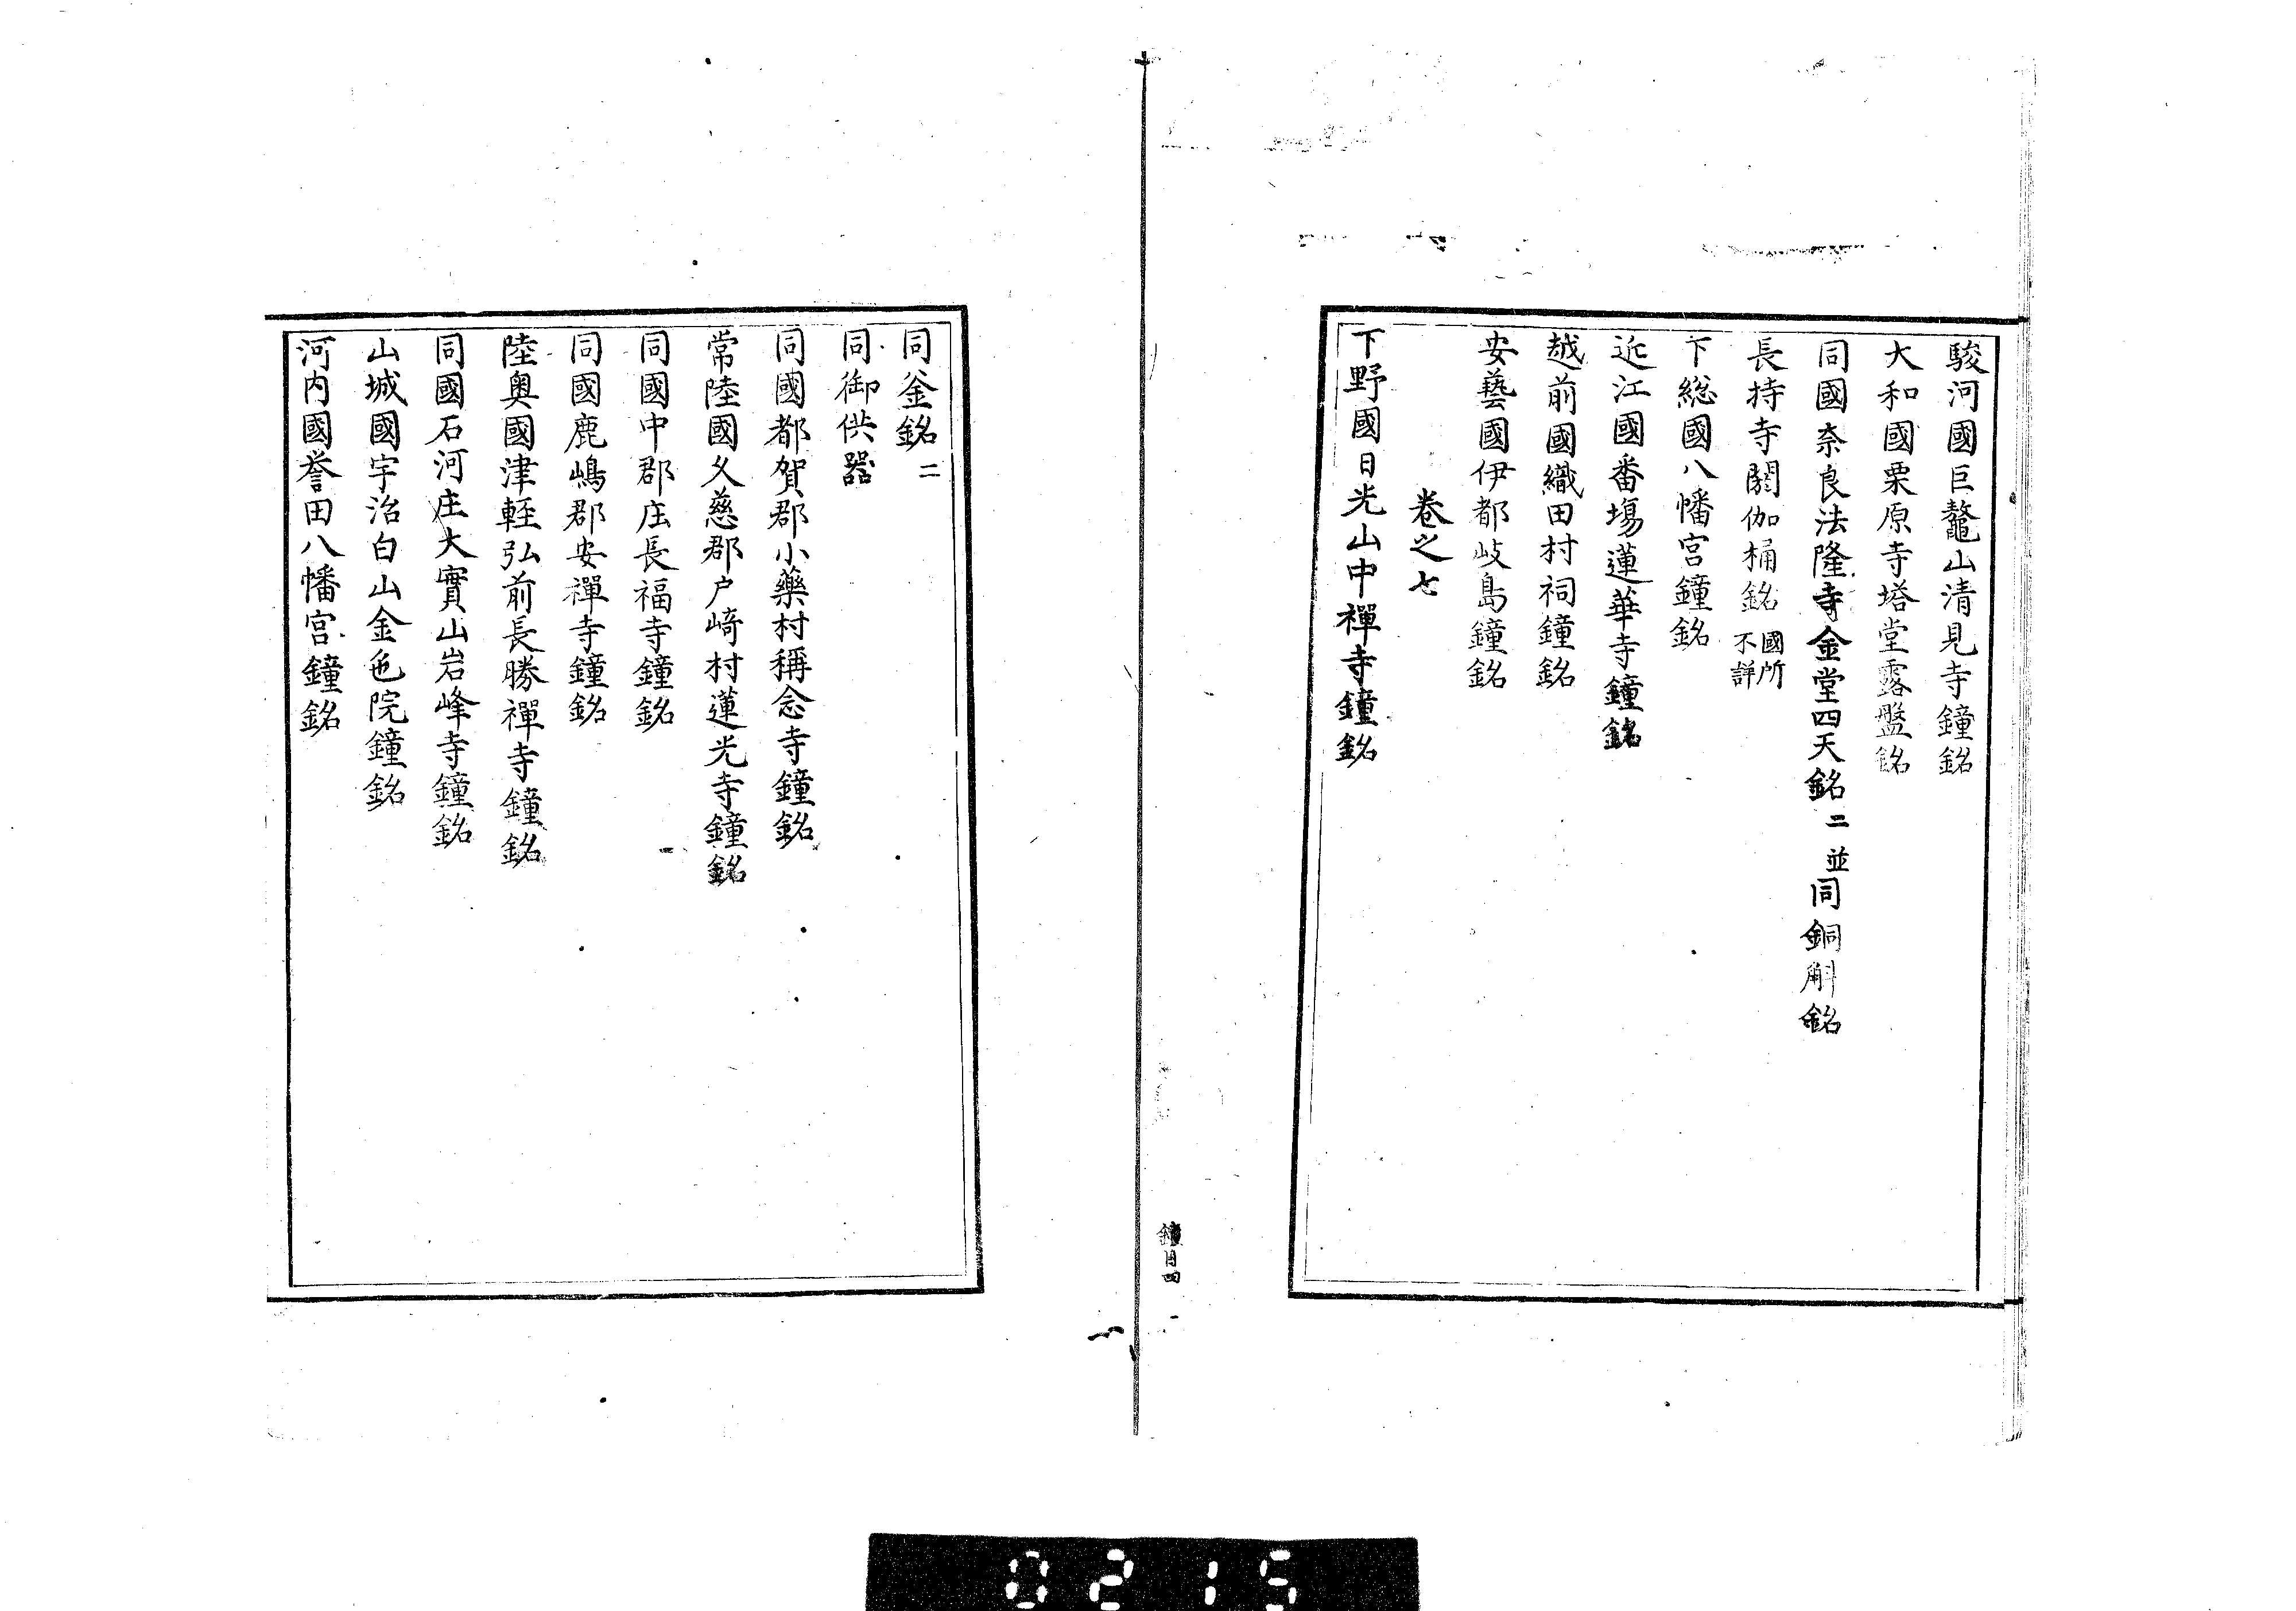 駿河國巨鼇山清見寺鐘銘
大和國栗原寺塔堂露盤銘
同國奈良法隆寺金堂四天銘二並同銅斛銘
長持寺閼伽桶銘國所不詳
下総國八幡宮鐘銘
近江國番塲蓮華寺鐘銘
越前國織田村祠鐘銘
安藝國伊都岐島鐘銘
巻之七
下野國日光山中禪寺鐘銘
鐘目四
同釜銘二
同御供器
同國都賀郡小藥村稱念寺鐘銘
常陸國久慈郡户﨑村蓮光寺鐘銘
同國中郡庄長福寺鐘銘
同國鹿嶋郡安禪寺鐘銘
陸奥國津軽弘前長勝禪寺鐘銘
同國石河庄大實山岩峰寺鐘銘
山城國宇治白山金色院鐘銘
河内國誉田八幡宮鐘銘
0215